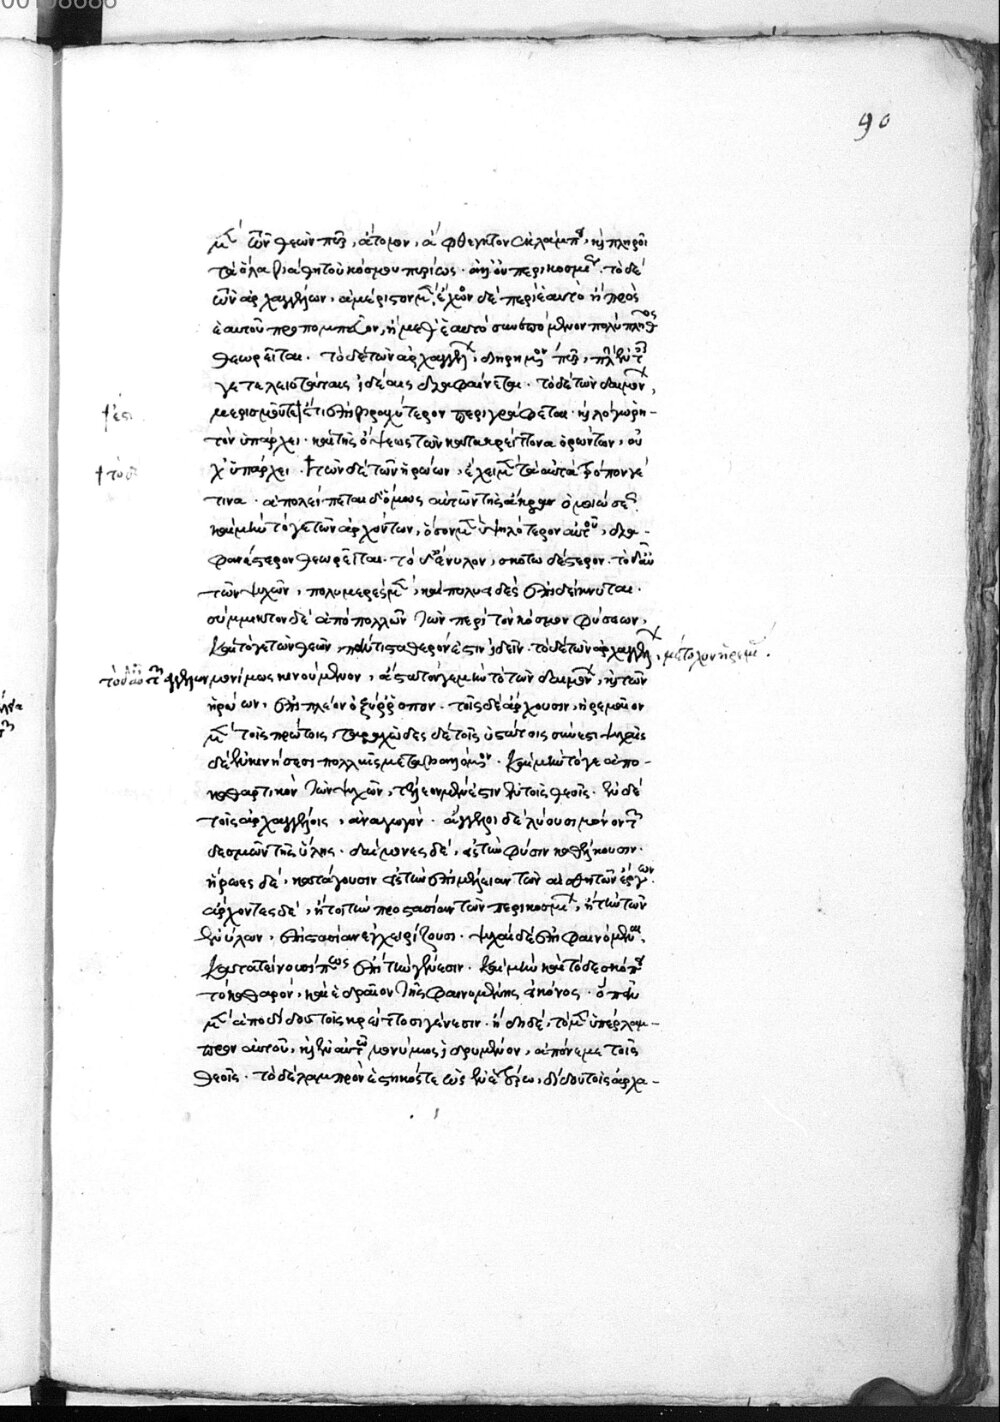 90
μὲν τῶν θεῶν πῦρ, ἄτομον, ἄφθεγκτον ἐκλάμπει, καὶ πληροῖ
τὰ ὅλα βάθη τοῦ κόσμου πυρίως. ἀλλ' οὐ περικοσμίως. τὸ δὲ
τῶν ἀρχαγγέλων, ἀμέριστον μὲν, ἔχον δὲ περὶ ἑαυτὸ ἢ πρὸ
ἑαυτοῦ προπομπεῦον, ἢ μεθ' ἑαυτὸ συνεπόμενον πολὺ πλῆθος
θεωρεῖται. τὸ δὲ τῶν ἀγγέλων, διῃρημένον πῦρ, πλὴν ἔν
γε τελειοτάταις ἰδέαις διαφαίνεται. τὸ δὲ τῶν δαιμόνων,
μερισμῷ τε ἔτι ἐπὶ βραχύτερον περιγράφεται. καὶ λόγῳ ῥη-
τὸν ὑπάρχει. καὶ τῆς ὄψεως τῶν τὰ κρείττονα ὁρώντων, οὐ
χ ὑπάρχει. τῶν δὲ τῶν ἡρώων, ἔχει μὲν τὰ αὐτὰ τρόπον γέ
τινα. ἀπολείπεται δ' ὅμως αὐτῶν τῆς ἄκρας ὁμοιώσεως.
καὶ μὴν τό γε τῶν ἀρχόντων, ὅσον μὲν ὑψηλότερον αὐτοῦ, δια-
φανέστερον θεωρεῖται. τὸ δ' ἔνυλον, σκοτωδέστερον. τὸ δ' αὖ
τῶν ψυχῶν, πολυμερὲς μὲν, καὶ πολυειδὲς ἐπιδείκνυται.
σύμμικτον δὲ ἀπὸ πολλῶν τῶν περὶ τὸν κόσμον φύσεων.
καὶ τό γε τῶν θεῶν πάντη σταθερόν ἐστιν ἰδεῖν. τὸ δὲ τῶν ἀρχαγγέλων, μέτοχον ἠρεμίας.
τὸ δὲ τῶν ἀγγέλων μονίμως κινούμενον, ἄστατόν γε μὴν τὸ τῶν δαιμόνων, καὶ τῶν
ἡρώων, ἐπὶ πλέον ὀξύρροπον. τοῖς δὲ ἄρχουσιν, ἠρεμαῖον
μὲν τοῖς πρώτοις, ταραχῶδες δὲ τοῖς ὑστάτοις σύνεστι. ψυχαῖς
δὲ ἐν κινήσεσι πολλαῖς μεταβαλλόμενον. καὶ μὴν τό γε ἀπο-
καθαρτικὸν τῶν ψυχῶν, τέλεον μέν ἐστιν ἐν τοῖς θεοῖς. ἐν δὲ
τοῖς ἀρχαγγέλοις, ἀναγωγόν. ἄγγελοι δὲ λύουσι μόνον τῶν
δεσμῶν τῆς ὕλης. δαίμονες δὲ, εἰς τὴν φύσιν καθέλκουσιν.
ἥρωες δὲ, κατάγουσιν εἰς τὴν ἐπιμέλειαν τῶν αἰσθητῶν ἔργων.
ἄρχοντες δὲ, ἤτοι τὴν προστασίαν τῶν περικοσμίων, ἢ τὴν τῶν
ἐνύλων, ἐπιστασίαν ἐγχειρίζουσι. ψυχαὶ δὲ ἐπιφαινόμεναι,
κατατείνουσί πως ἐπὶ τὴν γένεσιν. καὶ μὴν καὶ τόδε σκόπει
τὸ καθαρὸν, καὶ ἑδραῖον τῆς φαινομένης εἰκόνος. ὃ πᾶν
μὲν ἀποδίδου τοῖς κρείττοσι γένεσιν. ἤδη δὲ, τὸ μὲν ὑπέρλαμ-
προν αὐτοῦ, καὶ ἐν αὑτῷ μονίμως ἱδρυμένον, ἀπόνεμε τοῖς
θεοῖς. τὸ δὲ λαμπρὸν ἑστηκός τε ὡς ἐν ἑτέρῳ, δίδου τοῖς ἀρχα-